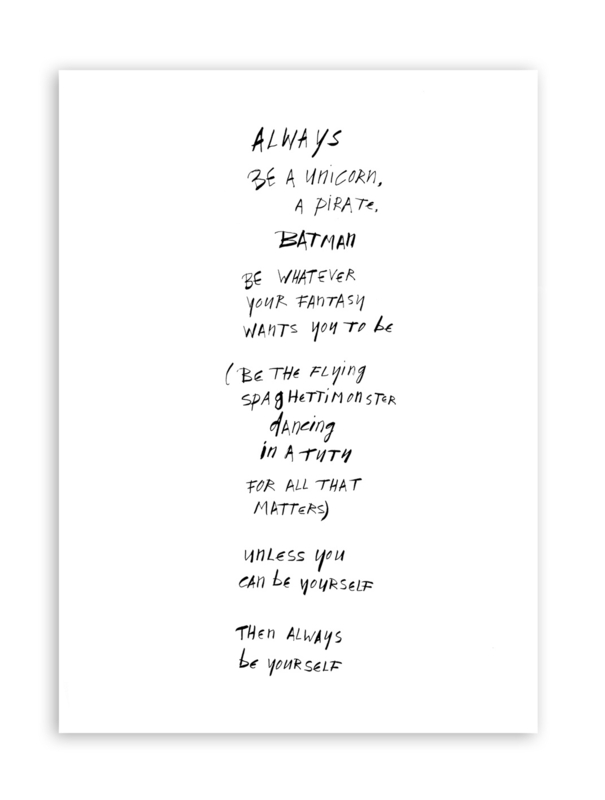 ALWAYS
BE A UNICORN,
A PIRATE,
BATMAN
BE WHATEVER
YOUR FANTASY
WANTS YOU TO be
(BE THE FLying
SPAgHETTiMONSTER
dAncing
in A TUTU
FOR ALL THAT
MATTERS)
UNLESS YOU
CAN be YOURSELF
THEn ALWAYS
be YOURSELF